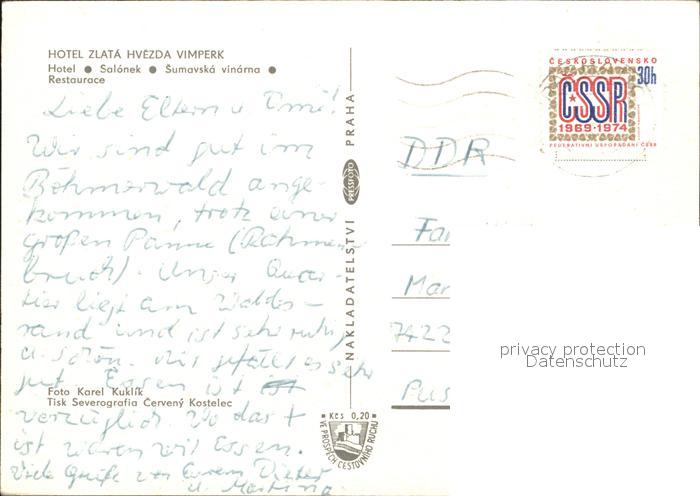 HOTEL ZLATÁ HVĚZDA VIMPERK
Hotel ● Salónek ● Šumavská vinárna ●
Restaurace
Liebe Eltern u. Omi!
Wir sind gut im
Böhmerwald ange-
kommen, trotz einer
großen Panne (Rahmen-
bruch). Unser Quar-
tier liegt am Waldes-
rand und ist sehr ruhig
u. schön. Mir gefällt es sehr
gut. Essen ist
Foto Karel Kuklík
Tisk Severografia Červený Kostelec
vorzüglich. Wo das +
ist waren wir Essen.
Viele Grüße von Eurem Dieter
u. Martina.
NAKLADATELSTVÍ PRESSFOTO PRAHA
Kčs 0,20
VE PROSPĚCH CESTOVNÍHO RUCHU
ČESKOSLOVENSKO
30h
ČSSR
1969-1974
FEDERATIVNÍ USPOŘÁDÁNÍ ČSSR
DDR
Fa
Mar
7422
Pus
privacy protection
Datenschutz